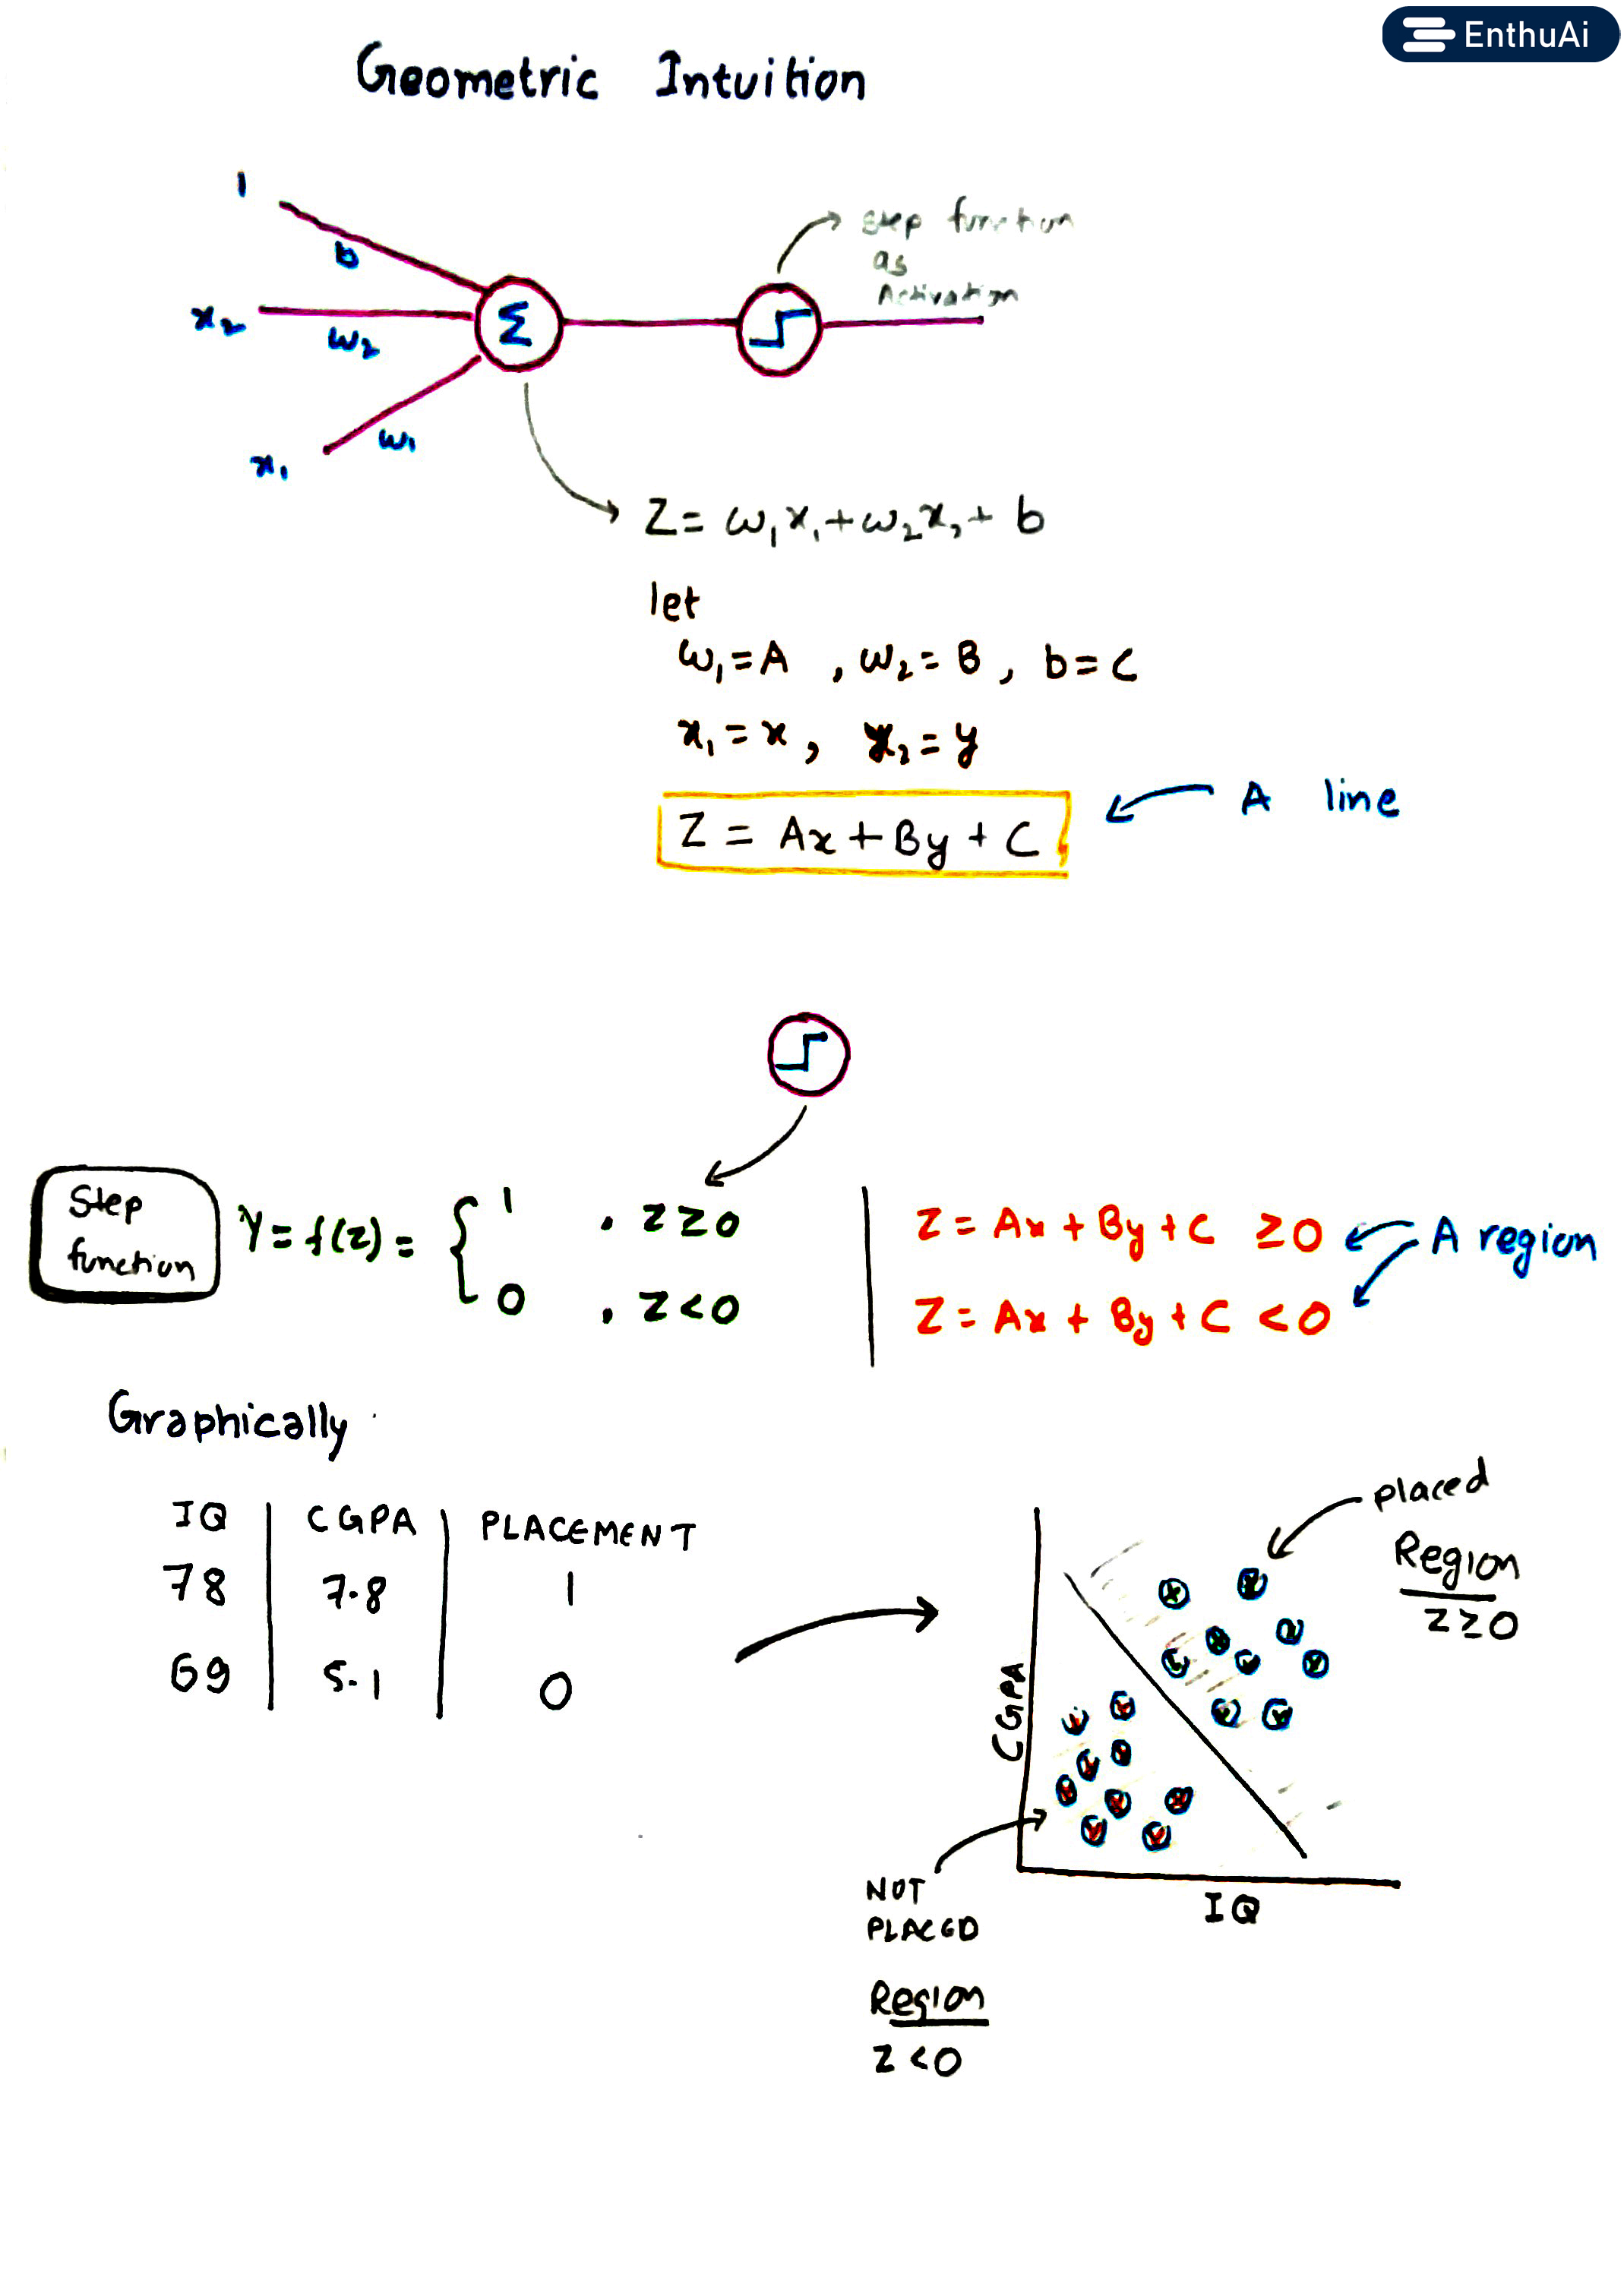 EnthuAi
Geometric Intuition
1
b
x₂
w₂
Σ
x₁
w₁
step function
as
Activation
Z = w₁x₁ + w₂x₂ + b
let
w₁ = A , w₂ = B , b = C
x₁ = x , x₂ = y
Z = Ax + By + C
A line
Step
function
Y = f(z) = { 1 , z ≥ 0
0 , z < 0
Z = Ax + By + C ≥ 0
Z = Ax + By + C < 0
A region
Graphically
IQ | CGPA | PLACEMENT
78 | 7.8 | 1
69 | 5.1 | 0
placed
Region
Z ≥ 0
CGPA
IQ
NOT
PLACED
Region
Z < 0